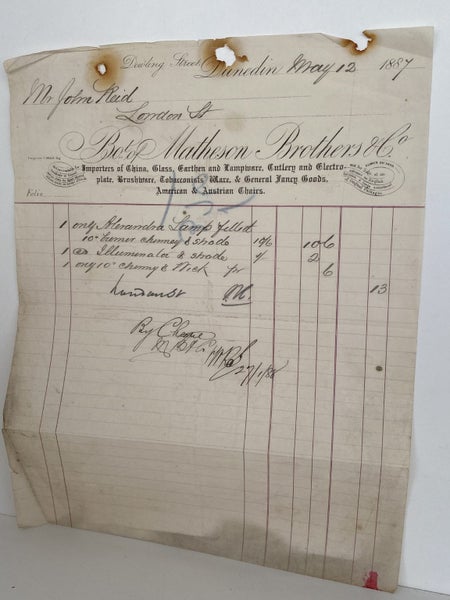 Dowling Street, Dunedin May 12 1887
Mr John Reid
London St
Bot. of Matheson Brothers & Co
Importers of China, Glass, Earthen and Lampware, Cutlery and Electro-
plate, Brushware, Tobacconists' Ware, & General Fancy Goods,
American & Austrian Chairs.
Folio
1 only Alexandra Lamp fitted
10''' burner chimney & shade 10/6 10 6
1 Illuminator & shade 2/ 2
1 only 10''' chimney & Wick 6
13
London St
By Cheque
27/1/88